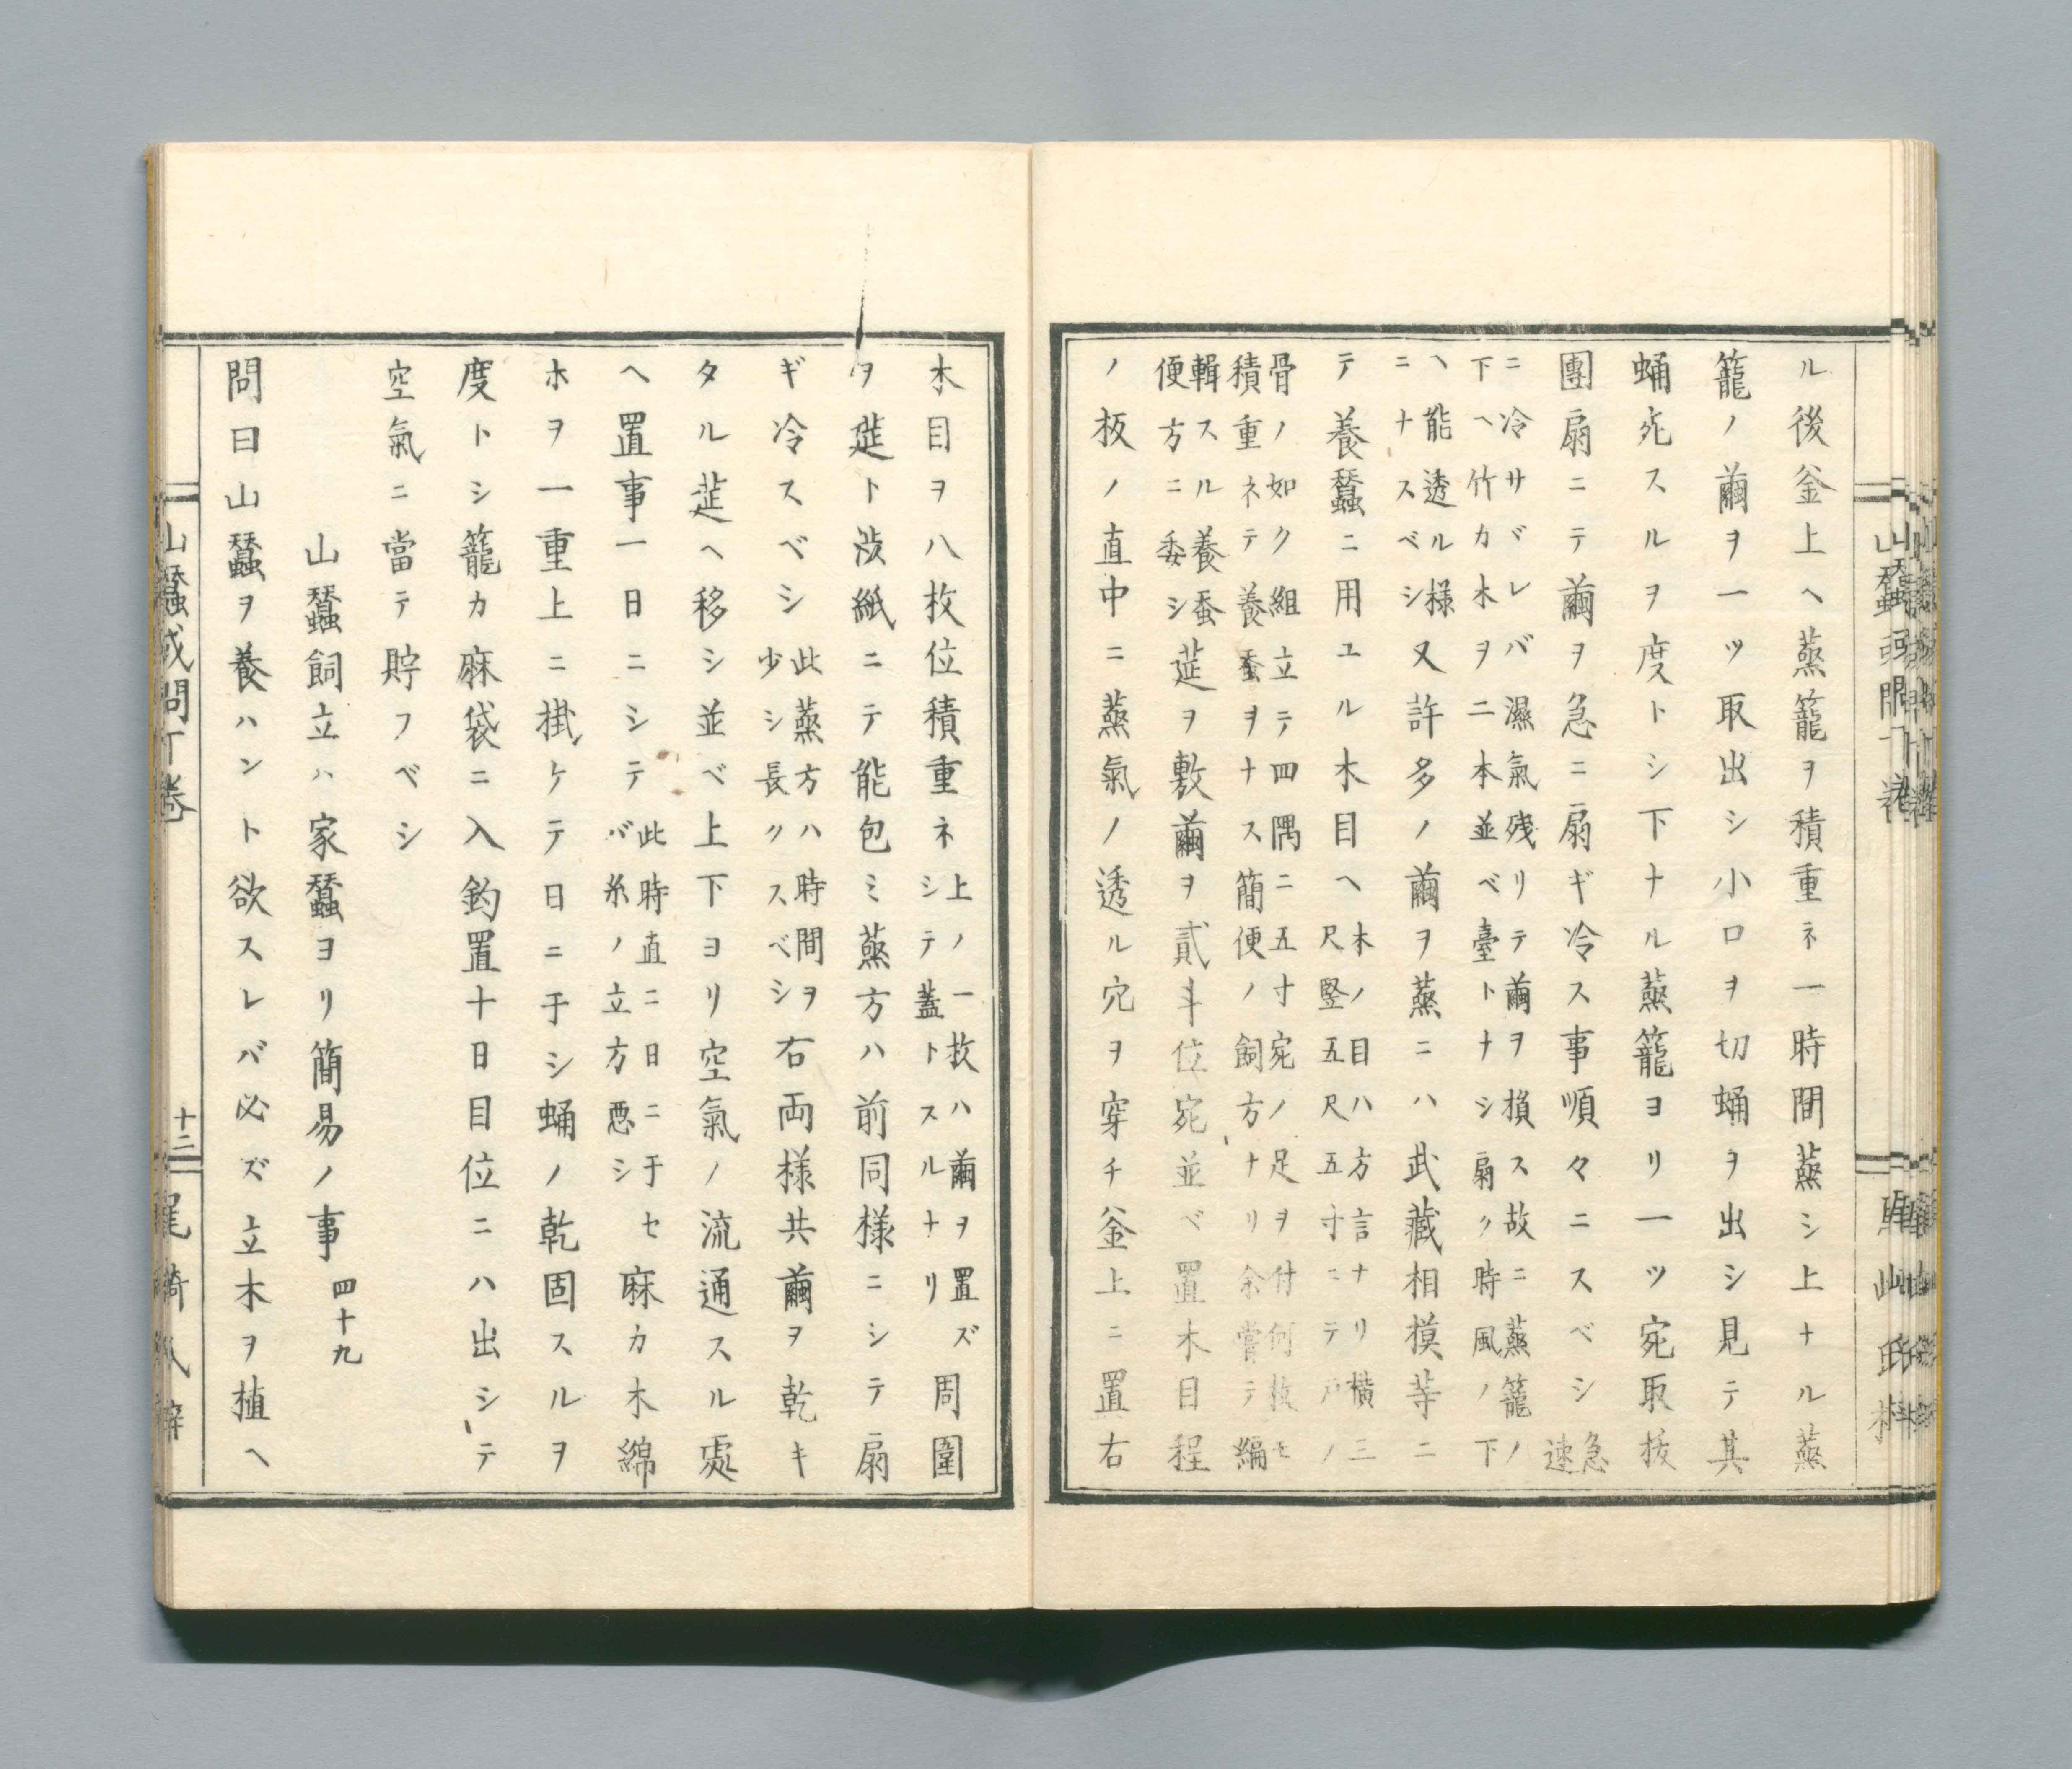 ル後釜上ヘ蒸籠ヲ積重ネ一時間蒸シ上ナル蒸
籠ノ繭ヲ一ツ取出シ小口ヲ切蛹ヲ出シ見テ其
蛹死スルヲ度トシ下ナル蒸籠ヨリ一ツ宛取抜
團扇ニテ繭ヲ急ニ扇ギ冷ス事順々ニスベシ急
速
ニ冷サバレバ濕氣残リテ繭ヲ損ス故ニ蒸籠ノ
下ヘ竹カ木ヲ二本並ベ臺トナシ扇ク時風ノ下
ヘ能透ル様
ニナスベシ
又許多ノ繭ヲ蒸ニハ武藏相摸等ニ
テ養蠶ニ用ユル木目ヘ
木ノ目ハ方言ナリ横三
尺竪五尺五寸ニテ戸ノ
骨ノ如ク組立テ四隅ニ五寸宛ノ足ヲ付何枚モ
積重ネテ養蚕ヲナス簡便ノ飼方ナリ余嘗テ編
輯スル養蚕
便方ニ委シ
莚ヲ敷繭ヲ貳斗位宛並ベ置木目程
ノ板ノ直中ニ蒸氣ノ透ル穴ヲ穿チ釜上ニ置右
木目ヲ八枚位積重ネ
上ノ一枚ハ繭ヲ置ズ
シテ蓋トスルナリ
周圍
ヲ莚ト渋紙ニテ能包ミ蒸方ハ前同様ニシテ扇
ギ冷スベシ
此蒸方ハ時間ヲ
少シ長クスベシ
右両様共繭ヲ乾キ
タル莚ヘ移シ並ベ上下ヨリ空氣ノ流通スル處
ヘ置事一日ニシテ
此時直ニ日ニ于セ
バ糸ノ立方悪シ
麻カ木綿
ホヲ一重上ニ掛ケテ日ニ于シ蛹ノ乾固スルヲ
度トシ籠カ麻袋ニ入釣置十日目位ニハ出シテ
空氣ニ當テ貯フベシ
山蠶飼立ハ家蠶ヨリ簡易ノ事 四十九
問曰山蠶ヲ養ハント欲スレバ必ズ立木ヲ植ヘ
山蠶或問下巻 十二